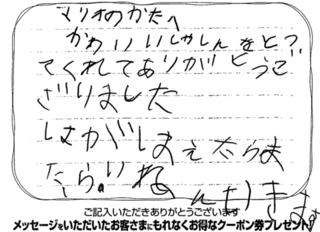 マリオのかたへ
かわいいしゃしんをとっ
てくれてありがとうご
ざりました
はがはえたらま
たらいねんいきます
ご記入いただきありがとうございます
メッセージをいただいたお客さまにもれなくお得なクーポン券プレゼント